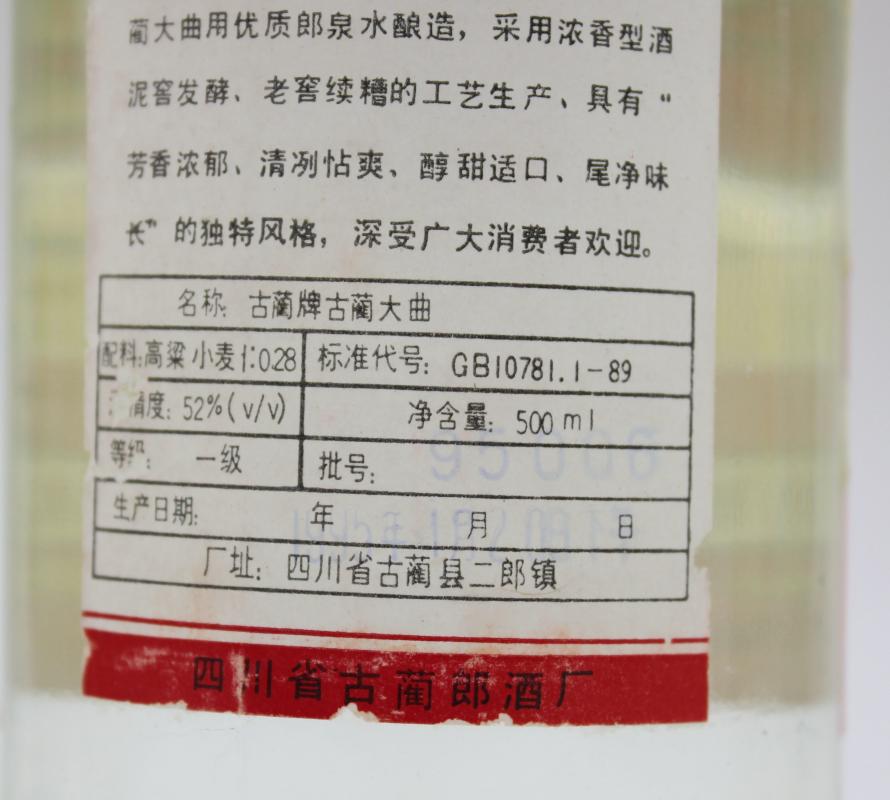 蔺大曲用优质郎泉水酿造，采用浓香型酒
泥窖发酵、老窖续糟的工艺生产、具有“
芳香浓郁、清冽怗爽、醇甜适口、尾净味
长”的独特风格，深受广大消费者欢迎。
名称：古蔺牌古蔺大曲
配料：高粱 小麦 1:0.28 标准代号：GB10781.1-89
酒精度：52%(v/v) 净含量：500ml
等级：一级 批号：95006
生产日期： 年 月 日
厂址：四川省古蔺县二郎镇
四川省古蔺郎酒厂